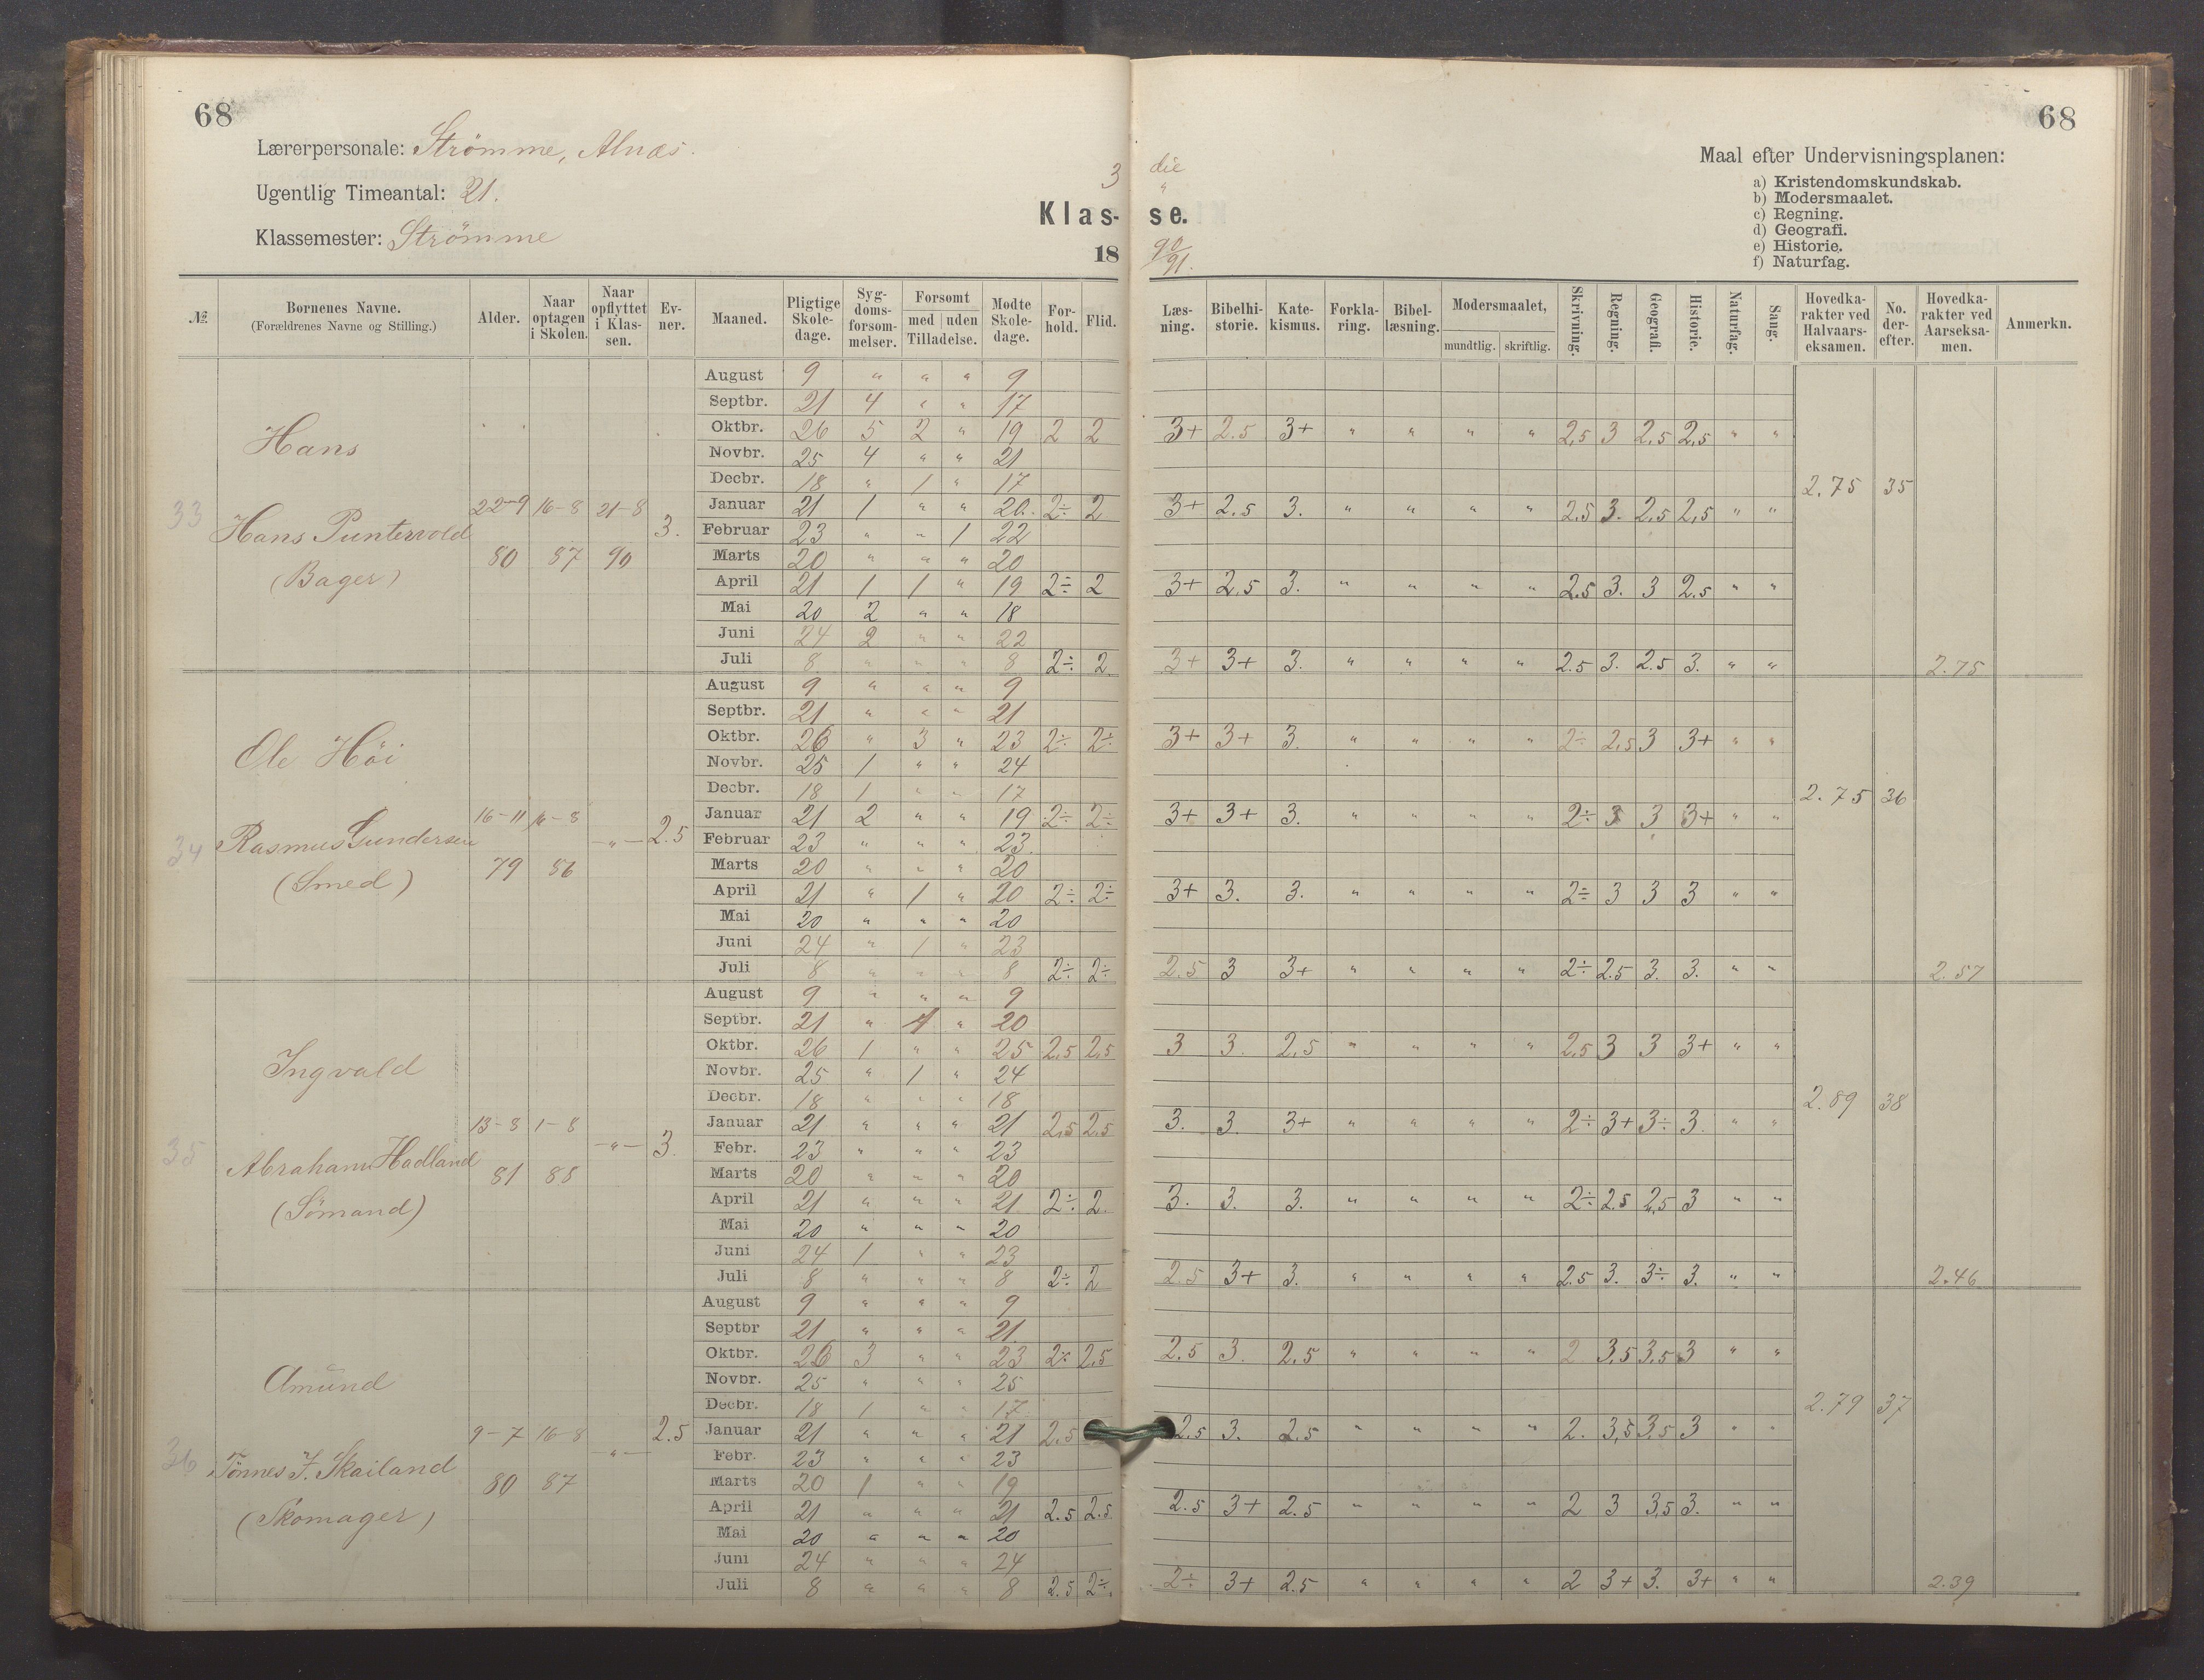 68
68
Lærerpersonale: Strömme, Alnæs.
Ugentlig Timeantal: 21.
Klassemester: Strömme
3 die
"
Klas- se.
18 90/91.
Maal efter Undervisningsplanen:
a) Kristendomskundskab.
b) Modersmaalet.
c) Regning.
d) Geografi.
e) Historie.
f) Naturfag.
№ | Bornenes Navne. (Forældrenes Navne og Stilling.) | Alder. | Naar optagen i Skolen. | Naar opflyttet i Klassen. | Evner. | Maaned. | Pligtige Skoledage. | Sygdomsforsommelser. | Forsomt med | uden Tilladelse. | Mødte Skoledage. | Forhold. | Flid. | Læsning. | Bibelhistorie. | Katekismus. | Forklaring. | Bibellæsning. | Modersmaalet, mundtlig. | skriftlig. | Skrivning. | Regning. | Geografi. | Historie. | Naturfag. | Sang. | Hovedkarakter ved Halvaarseksamen. | No. derefter. | Hovedkarakter ved Aarseksamen. | Anmerkn.
33 Hans
Hans Puntervold
(Bager)
22-9 80 | 16-8 87 | 21-8 90 | 3.
August 9 " " " 9
Septbr. 21 4 " " 17
Oktbr. 26 5 2 " 19 2 2 3+ 2.5 3+ " " " " 2,5 3 2,5 2,5 " "
Novbr. 25 4 " " 21
Decbr. 18 " 1 " 17 2.75 35
Januar 21 1 " " 20. 2÷ 2 3+ 2.5 3. " " " " 2.5 3. 2,5 2,5 " "
Februar 23 " " 1 22
Marts 20 " " " 20
April 21 1 1 " 19 2÷ 2 3+ 2.5 3. " " " " 2.5 3. 3 2.5 " "
Mai 20 2 " " 18
Juni 24 2 " " 22
Juli 8 " " " 8 2÷ 2 3+ 3+ 3. " " " " 2.5 3. 2.5 3. " " 2.75
34 Ole Höi
Rasmus Gundersen
(Smed)
16-11 79 | 16-8 86 | -"- | 2.5
August 9 " " " 9
Septbr. 21 " " " 21
Oktbr. 26 " 3 " 23 2÷ 2÷ 3+ 3+ 3. " " " " 2÷ 2,5 3 3+ " "
Novbr. 25 1 " " 24
Decbr. 18 1 " " 17 2.75 36
Januar 21 2 " " 19 2÷ 2÷ 3+ 3+ 3. " " " " 2÷ 3 3 3+ " "
Februar 23 " " " 23.
Marts 20 " " " 20
April 21 " 1 " 20 2÷ 2÷ 3+ 3. 3. " " " " 2÷ 3 3 3 " "
Mai 20 " " " 20
Juni 24 " 1 " 23
Juli 8 " " " 8 2÷ 2÷ 2.5 3 3+ " " " " 2÷ 2.5 3. 3. " " 2.57
35 Ingvald
Abraham Hadland
(Sömand)
13-8 81 | 1-8 88 | -"- | 3.
August 9 " " " 9
Septbr. 21 " 1 " 20
Oktbr. 26 1 " " 25 2,5 2,5 3 3. 2,5 " " " " 2,5 3 3 3+ " "
Novbr. 25 " 1 " 24
Decbr. 18 " " " 18 2.89 38
Januar 21 " " " 21 2,5 2.5 3. 3. 3+ " " " " 2÷ 3+ 3÷ 3. " "
Febr. 23 " " " 23
Marts 20 " " " 20
April 21 " " " 21 2÷ 2. 3. 3. 3. " " " " 2÷ 2.5 2,5 3 " "
Mai 20 " " " 20
Juni 24 1 " " 23
Juli 8 " " " 8 2÷ 2 2.5 3+ 3. " " " " 2.5 3. 3÷ 3. " " 2.46
36 Amund
Tönnes J. Skailand
(Skomager)
9-7 80 | 16-8 87 | -"- | 2.5
August 9 " " " 9
Septbr 21 " " " 21.
Oktbr. 26 3 " " 23 2÷ 2,5 2.5 3. 2,5 " " " " 2 3,5 3,5 3 " "
Novbr. 25 " " " 25
Decbr. 18 1 " " 17. 2.79 37
Januar 21 " " " 21 2.5 2.5 3. 2.5 " " " " 2. 3,5 3,5 3 " "
Febr. 23 " " " 23
Marts 20 1 " " 19
April 21 " " " 21 2.5 2.5 2.5 3+ 2.5 " " " " 2 3 3,5 3. " "
Mai 20 " " " 20
Juni 24 " " " 24
Juli 8 " " " 8 2.5 2÷. 2÷ 3+ 2.5 " " " " 2 3+ 3. 3+ " " 2.39